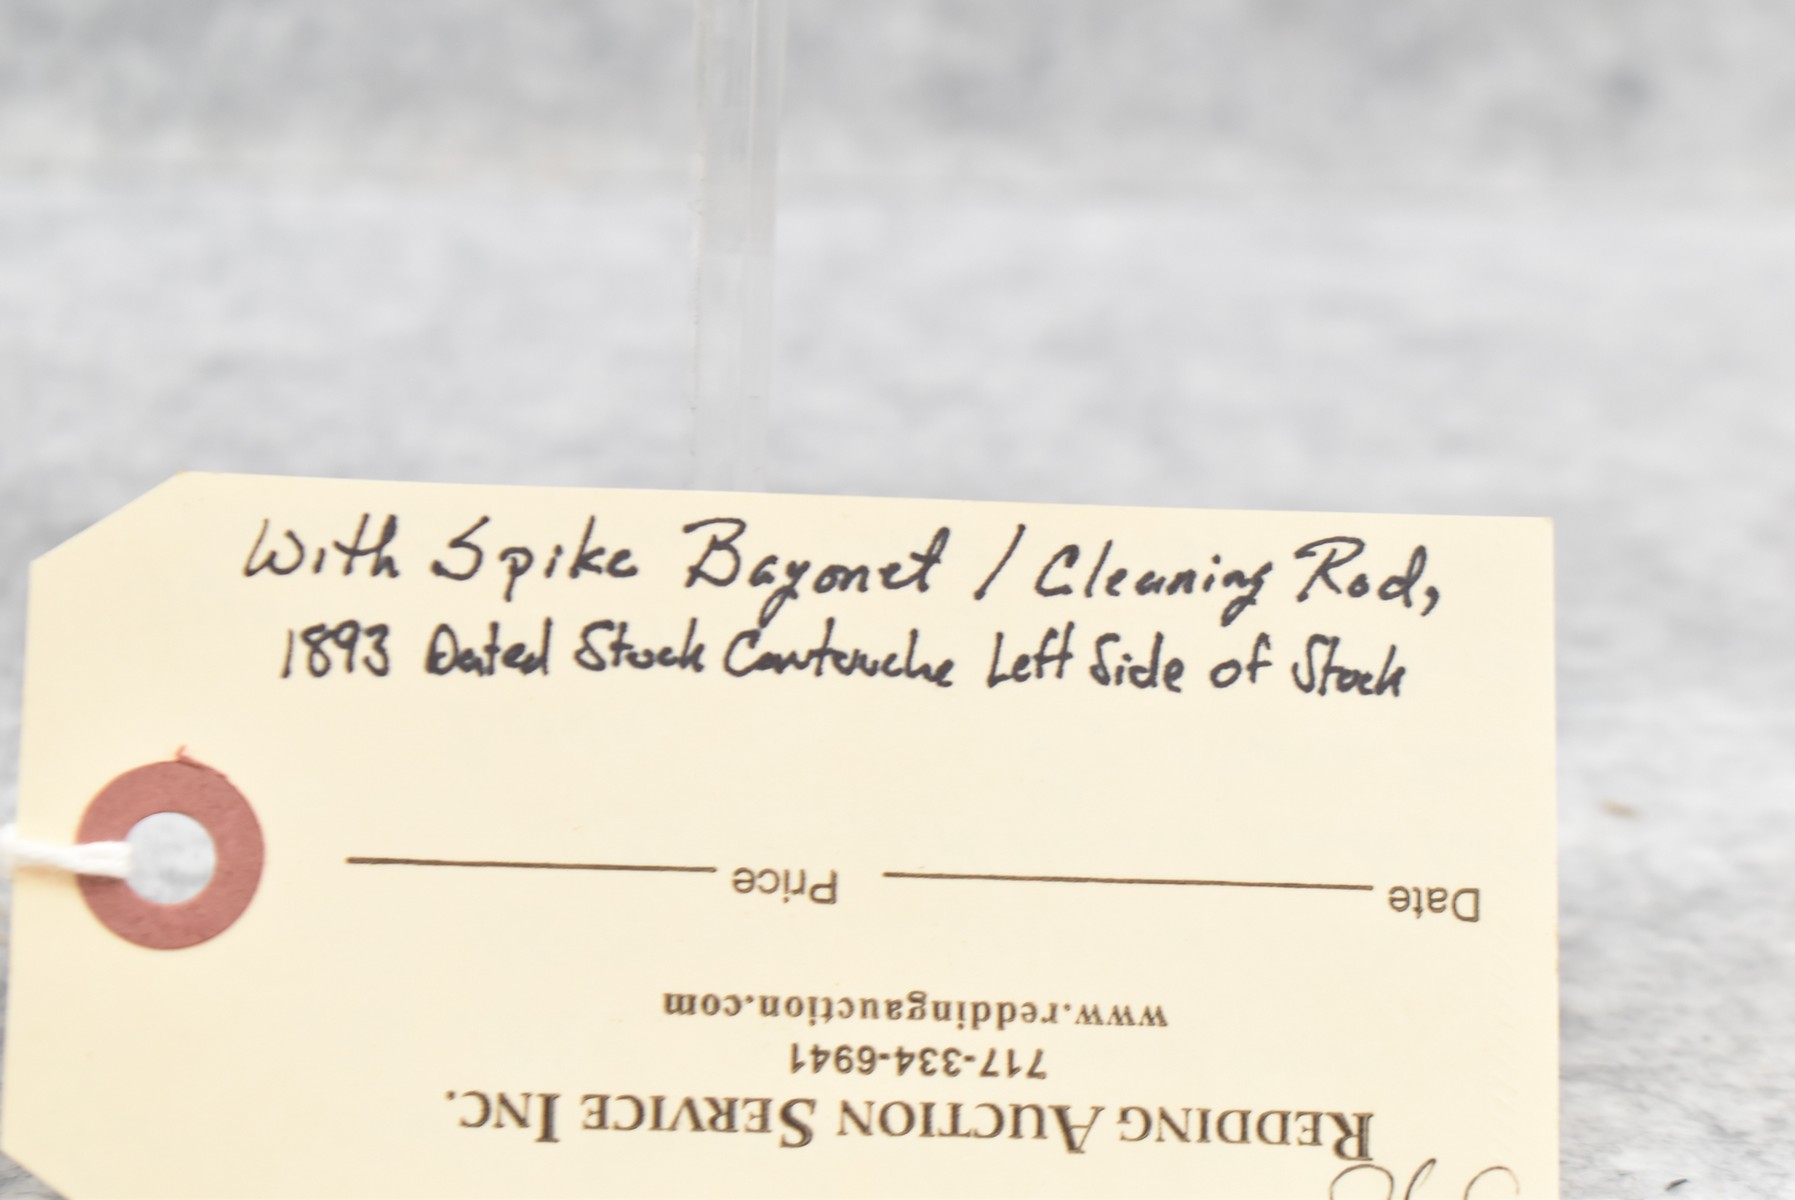 With Spike Bayonet / Cleaning Rod,
1893 Dated Stock Cartouche Left Side of Stock
REDDING AUCTION SERVICE INC.
717-334-6941
www.reddingauction.com
Date Price